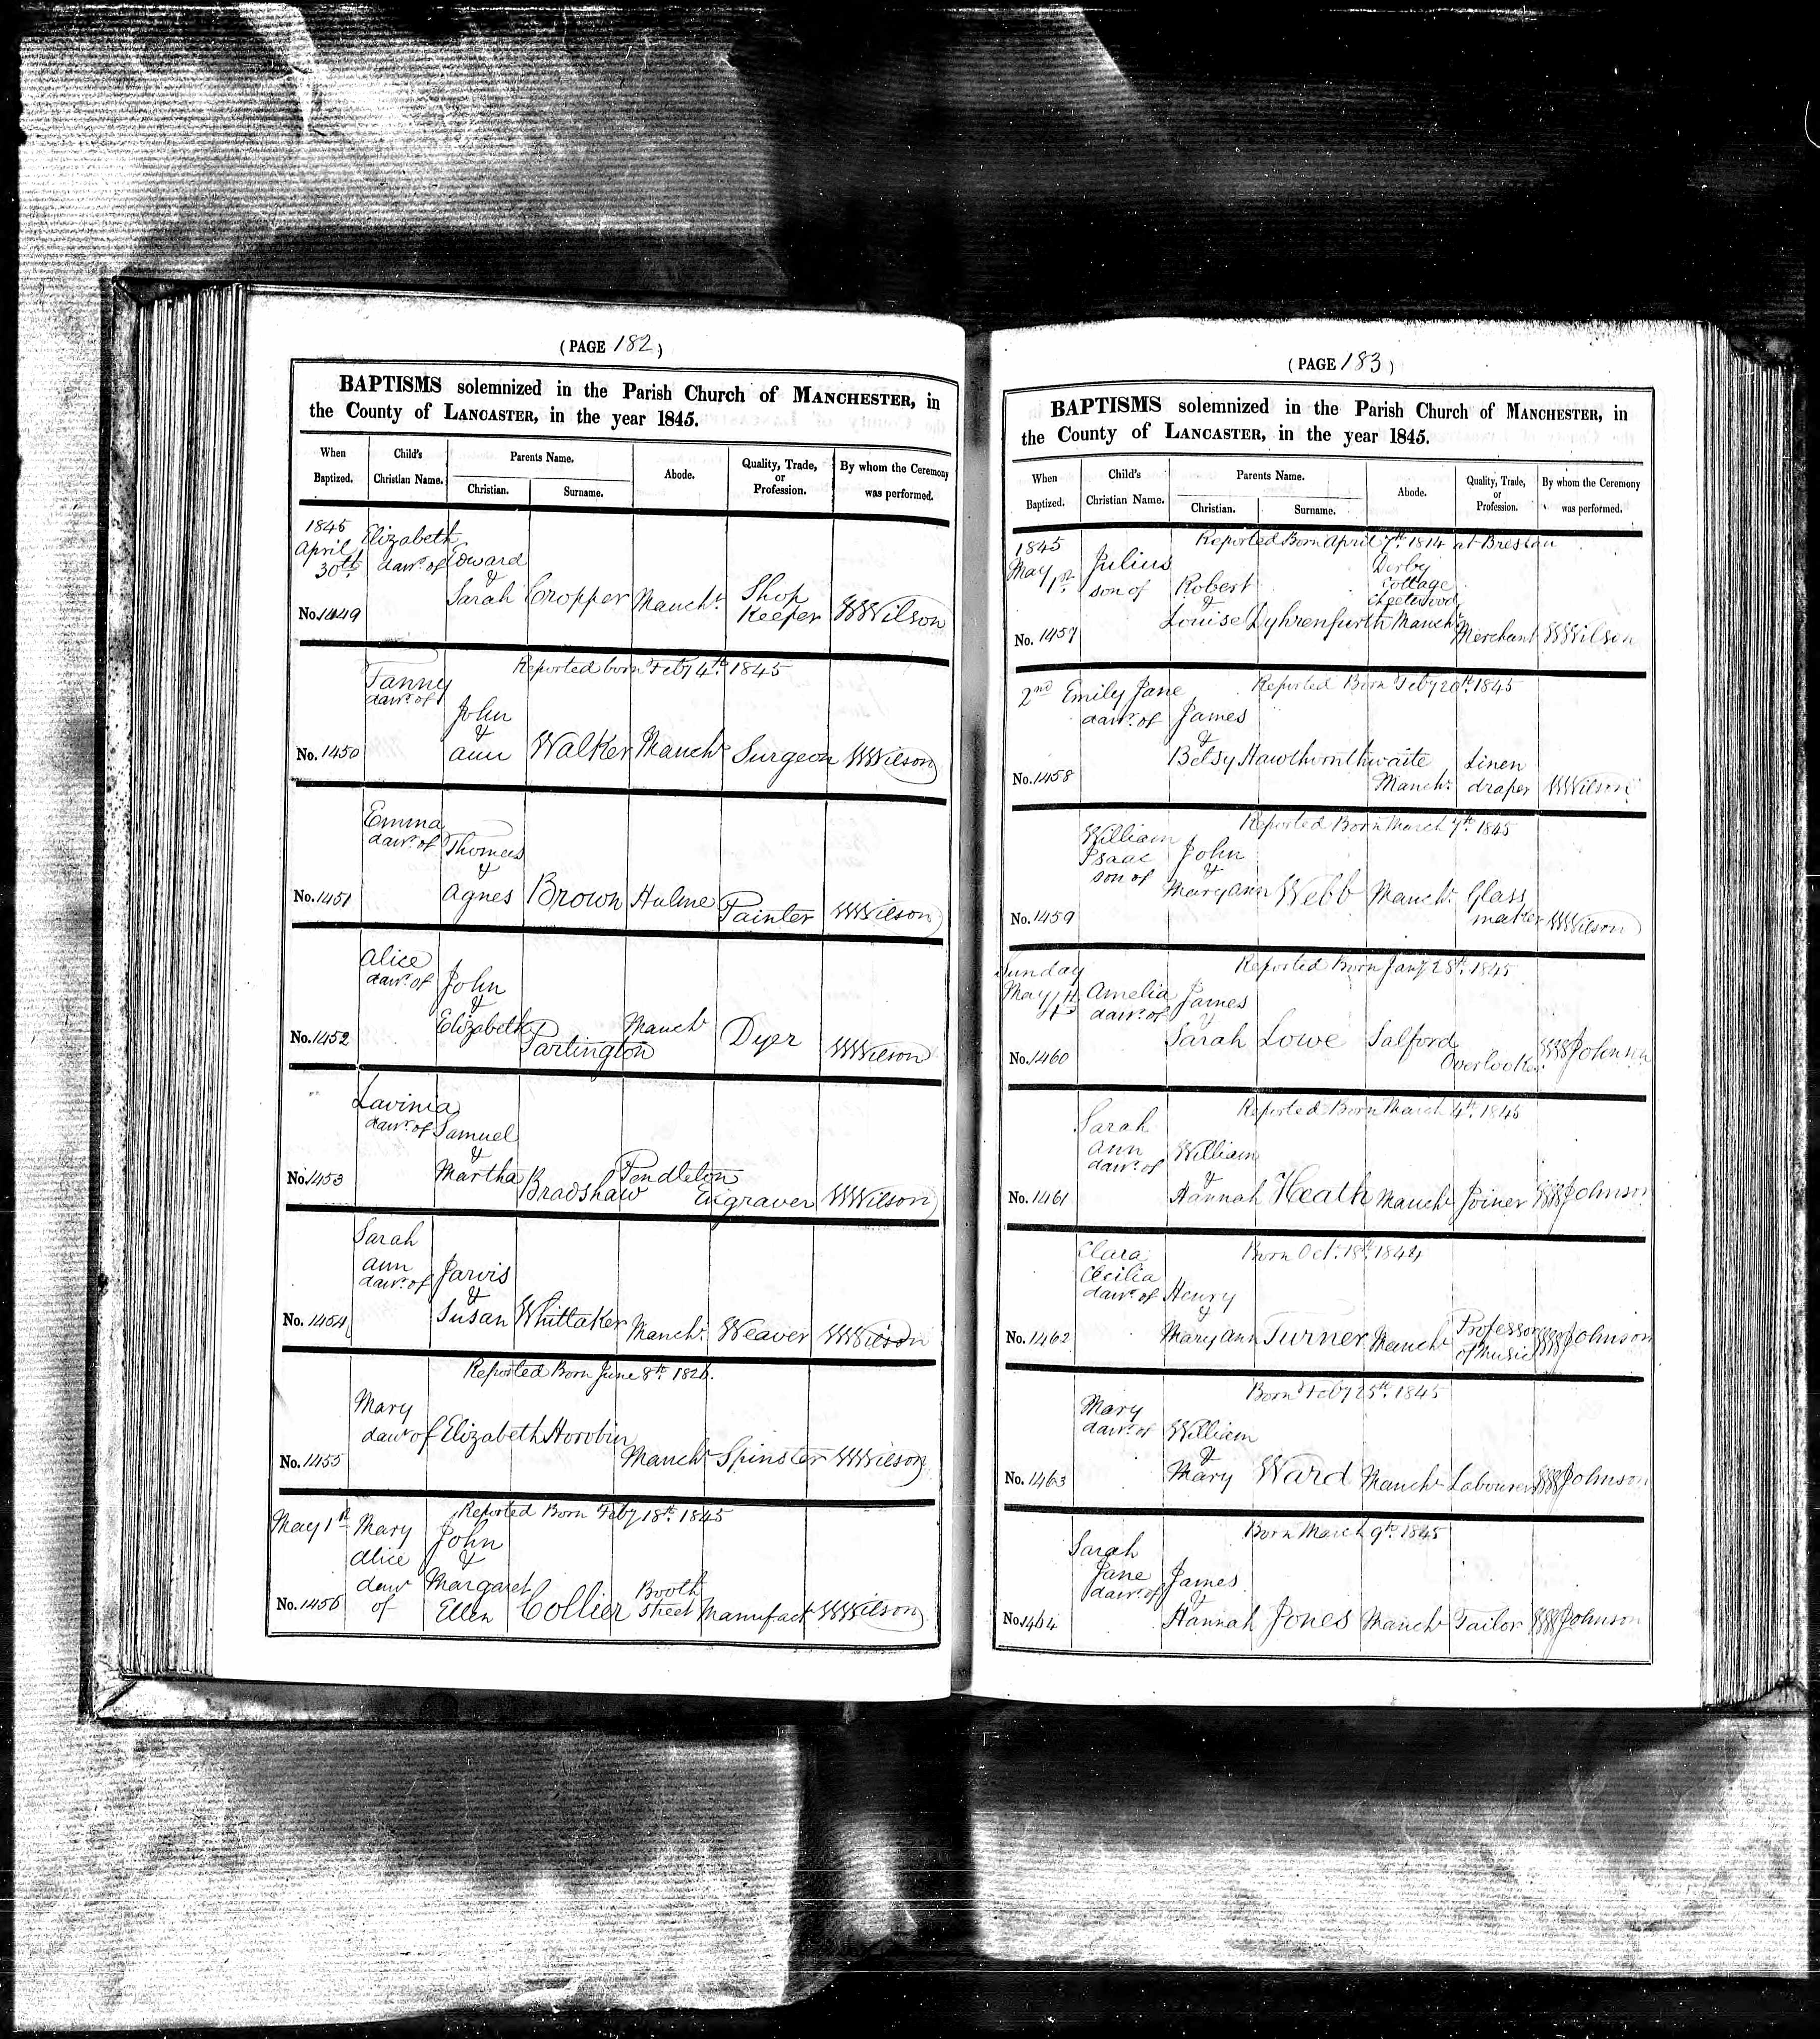 ( PAGE 182 )
BAPTISMS solemnized in the Parish Church of MANCHESTER, in
the County of LANCASTER, in the year 1845.
When Baptized.
Child's Christian Name.
Parents Name.
Christian.
Surname.
Abode.
Quality, Trade, or Profession.
By whom the Ceremony was performed.
1845
April
30th
No. 1449
Elizabeth
dawr. of
Edward
&
Sarah
Cropper
Manchr.
Shop
Keeper
WWilson
Reported born Feby 4th 1845
Fanny
dawr. of
John
&
ann
No. 1450
Walker
Manchr
Surgeon
WWilson
Emma
dawr. of
Thomas
&
Agnes
No. 1451
Brown
Hulme
Painter
WWilson
Alice
dawr. of
John
&
Elizabeth
No. 1452
Partington
Manchr
Dyer
WWilson
Lavinia
dawr. of
Samuel
&
Martha
No. 1453
Bradshaw
Pendleton
Engraver
WWilson
Sarah
ann
dawr. of
Jarvis
&
Susan
No. 1454
Whittaker
Manchr.
Weaver
WWilson
Reported Born June 8th 1826.
Mary
dawr of
Elizabeth
Horobin
No. 1455
Manchr
Spinster
WWilson
Reported Born Feby 18th 1845
May 1st
Mary
Alice
dawr
of
John
&
Margaret
Ellen
No. 1456
Collier
Booth
Street
Manufactr
WWilson
( PAGE 183 )
BAPTISMS solemnized in the Parish Church of MANCHESTER, in
the County of LANCASTER, in the year 1845.
When Baptized.
Child's Christian Name.
Parents Name.
Christian.
Surname.
Abode.
Quality, Trade, or Profession.
By whom the Ceremony was performed.
Reported Born April 7th 1814 at Breslau
1845
May 1st
No. 1457
Julius
son of
Robert
&
Louise
Dyhrenfurth
Derby
Cottage
Cheetwood
Manchr.
Merchant
WWilson
Reported Born Feby 20th 1845
2nd
No. 1458
Emily Jane
dawr. of
James
&
Betsy
Hawthornthwaite
Manchr.
Linen
draper
WWilson
Reported Born March 7th 1845
William
Isaac
son of
John
&
Mary ann
No. 1459
Webb
Manchr.
Glass
maker
WWilson
Reported Born Jany 28th 1845
Sunday
May 4
No. 1460
Amelia
dawr. of
James
&
Sarah
Lowe
Salford
Overlooker
Johnson
Reported Born March 4th 1845
Sarah
ann
dawr. of
William
&
Hannah
No. 1461
Heath
Manchr
Joiner
Johnson
Born Oct. 18th 1844
Clara
Cecilia
dawr. of
Henry
&
Mary Ann
No. 1462
Turner
Manchr
Professor
of Music
Johnson
Born Feby 25th 1845
Mary
dawr. of
William
&
Mary
No. 1463
Ward
Manchr
Labourer
Johnson
Born March 9th 1845
Sarah
Jane
dawr. of
James
&
Hannah
No. 1464
Jones
Manchr
Tailor
Johnson